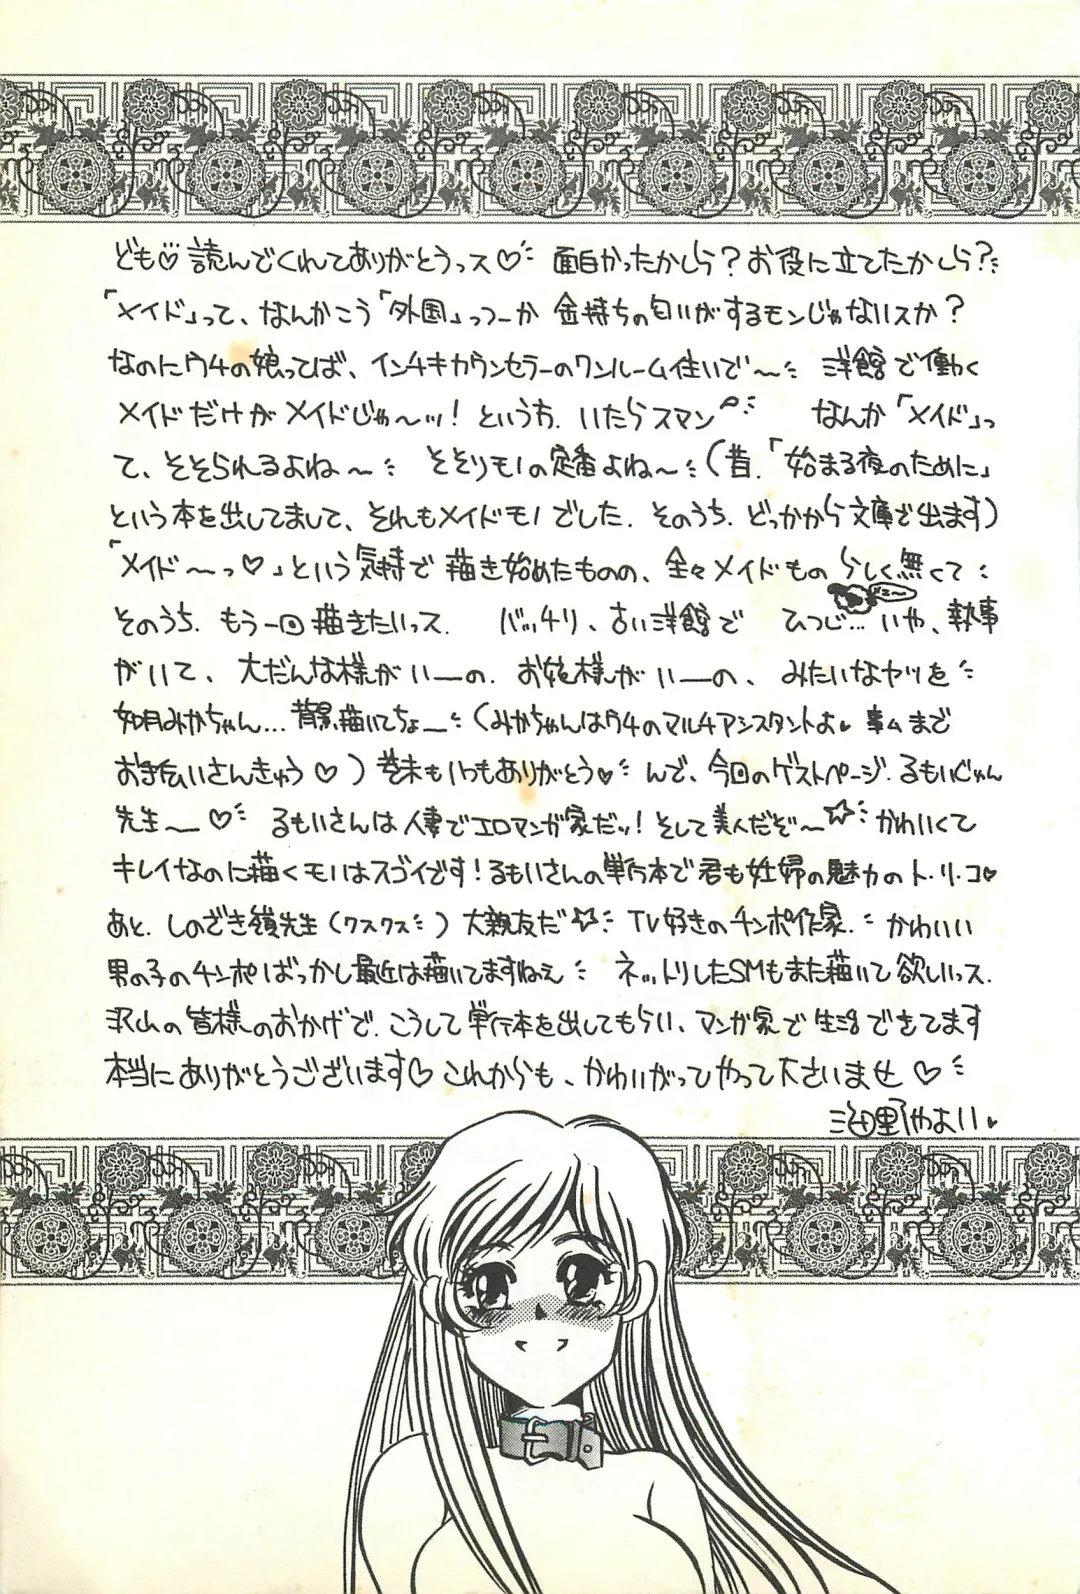 ども♡読んでくれてありがとうっス♡ 面白かったかしら?お役に立てたかしら?
「メイド」って、なんかこう「外国」っつーか 金持ちの匂いがするモンじゃないスか?
なのにウチの娘ってば、インチキカウンセラーのワンルーム住いで〜 洋館で働く
メイドだけがメイドじゃ〜ッ!というわ、いたらスマン なんか「メイド」っ
て、そそられるよね〜 そそりモノの定番よね〜(昔、「始まる夜のために」
という本を出してまして、それもメイドモノでした。そのうち、どっかから文庫で出ます)
「メイド〜っ♡」という気持で描き始めたものの、全々メイドものらしく無くて
そのうち、もう一回描きたいっス。 バッチリ、古い洋館で ひつじ…いや、執事
がいて、大だんな様がいーの、お姫様がいーの、みたいなヤツを
如月みかちゃん…背景描いてちょー(みかちゃんはウチのマルチアシスタントよ♥ 事ムまで
お手伝いさんきゅう♡)巻末もいつもありがとう♥ んで、今回のゲストページ、るもいじゅん
先生〜♡ るもいさんは人妻でエロマンガ家だッ!そして美人だぞ〜☆ かわいくて
キレイなのに描くモノはスゴイです!るもいさんの単行本で君も妊婦の魅力のト・リ・コ♥
あと、しのざき嶺先生(クスクス)大親友だ☆ TV好きのチンポ作家。 かわいい
男の子のチンポばっかし最近は描いてますねえ ネットリしたSMもまた描いて欲しいっス。
沢山の皆様のおかげで、こうして単行本を出してもらい、マンガ家で生活できてます
本当にありがとうございます♡これからも、かわいがってやって下さいませ♡
海野やよい♥